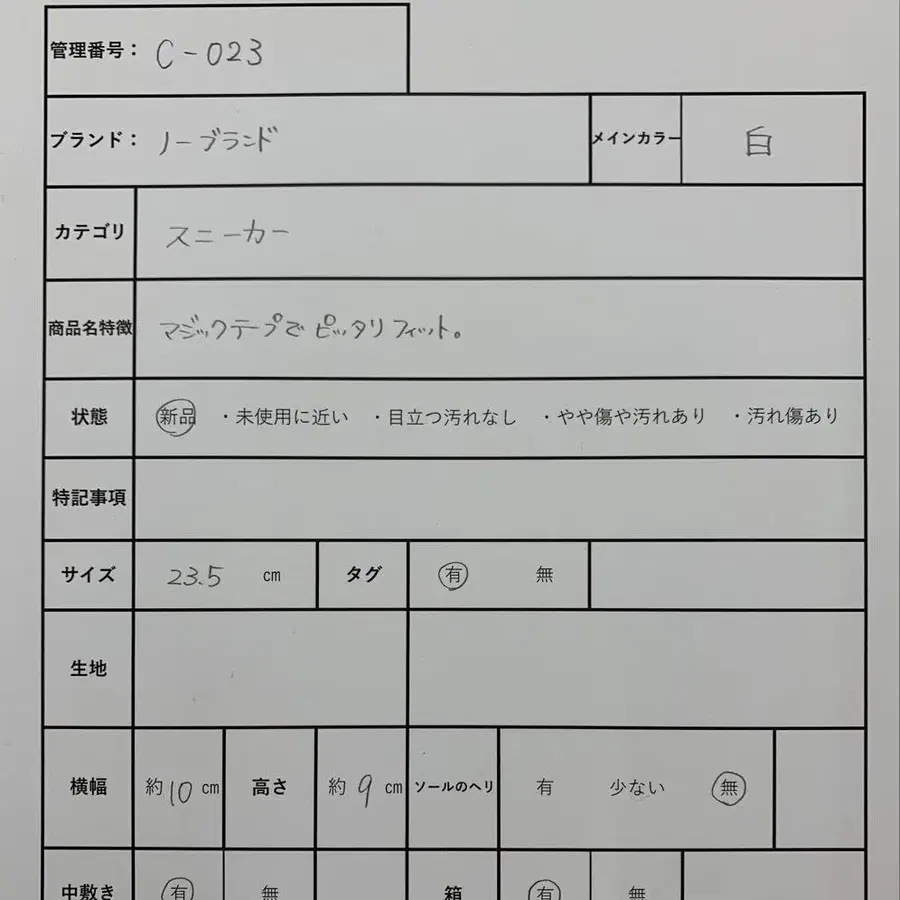 管理番号: C-023
ブランド: ノーブランド メインカラー 白
カテゴリ スニーカー
商品名特徴 マジックテープでピッタリフィット。
状態 新品 ・未使用に近い ・目立つ汚れなし ・やや傷や汚れあり ・汚れ傷あり
特記事項
サイズ 23.5 cm タグ 有 無
生地
横幅 約10cm 高さ 約9cm ソールのヘリ 有 少ない 無
中敷き 有 無 箱 有 無